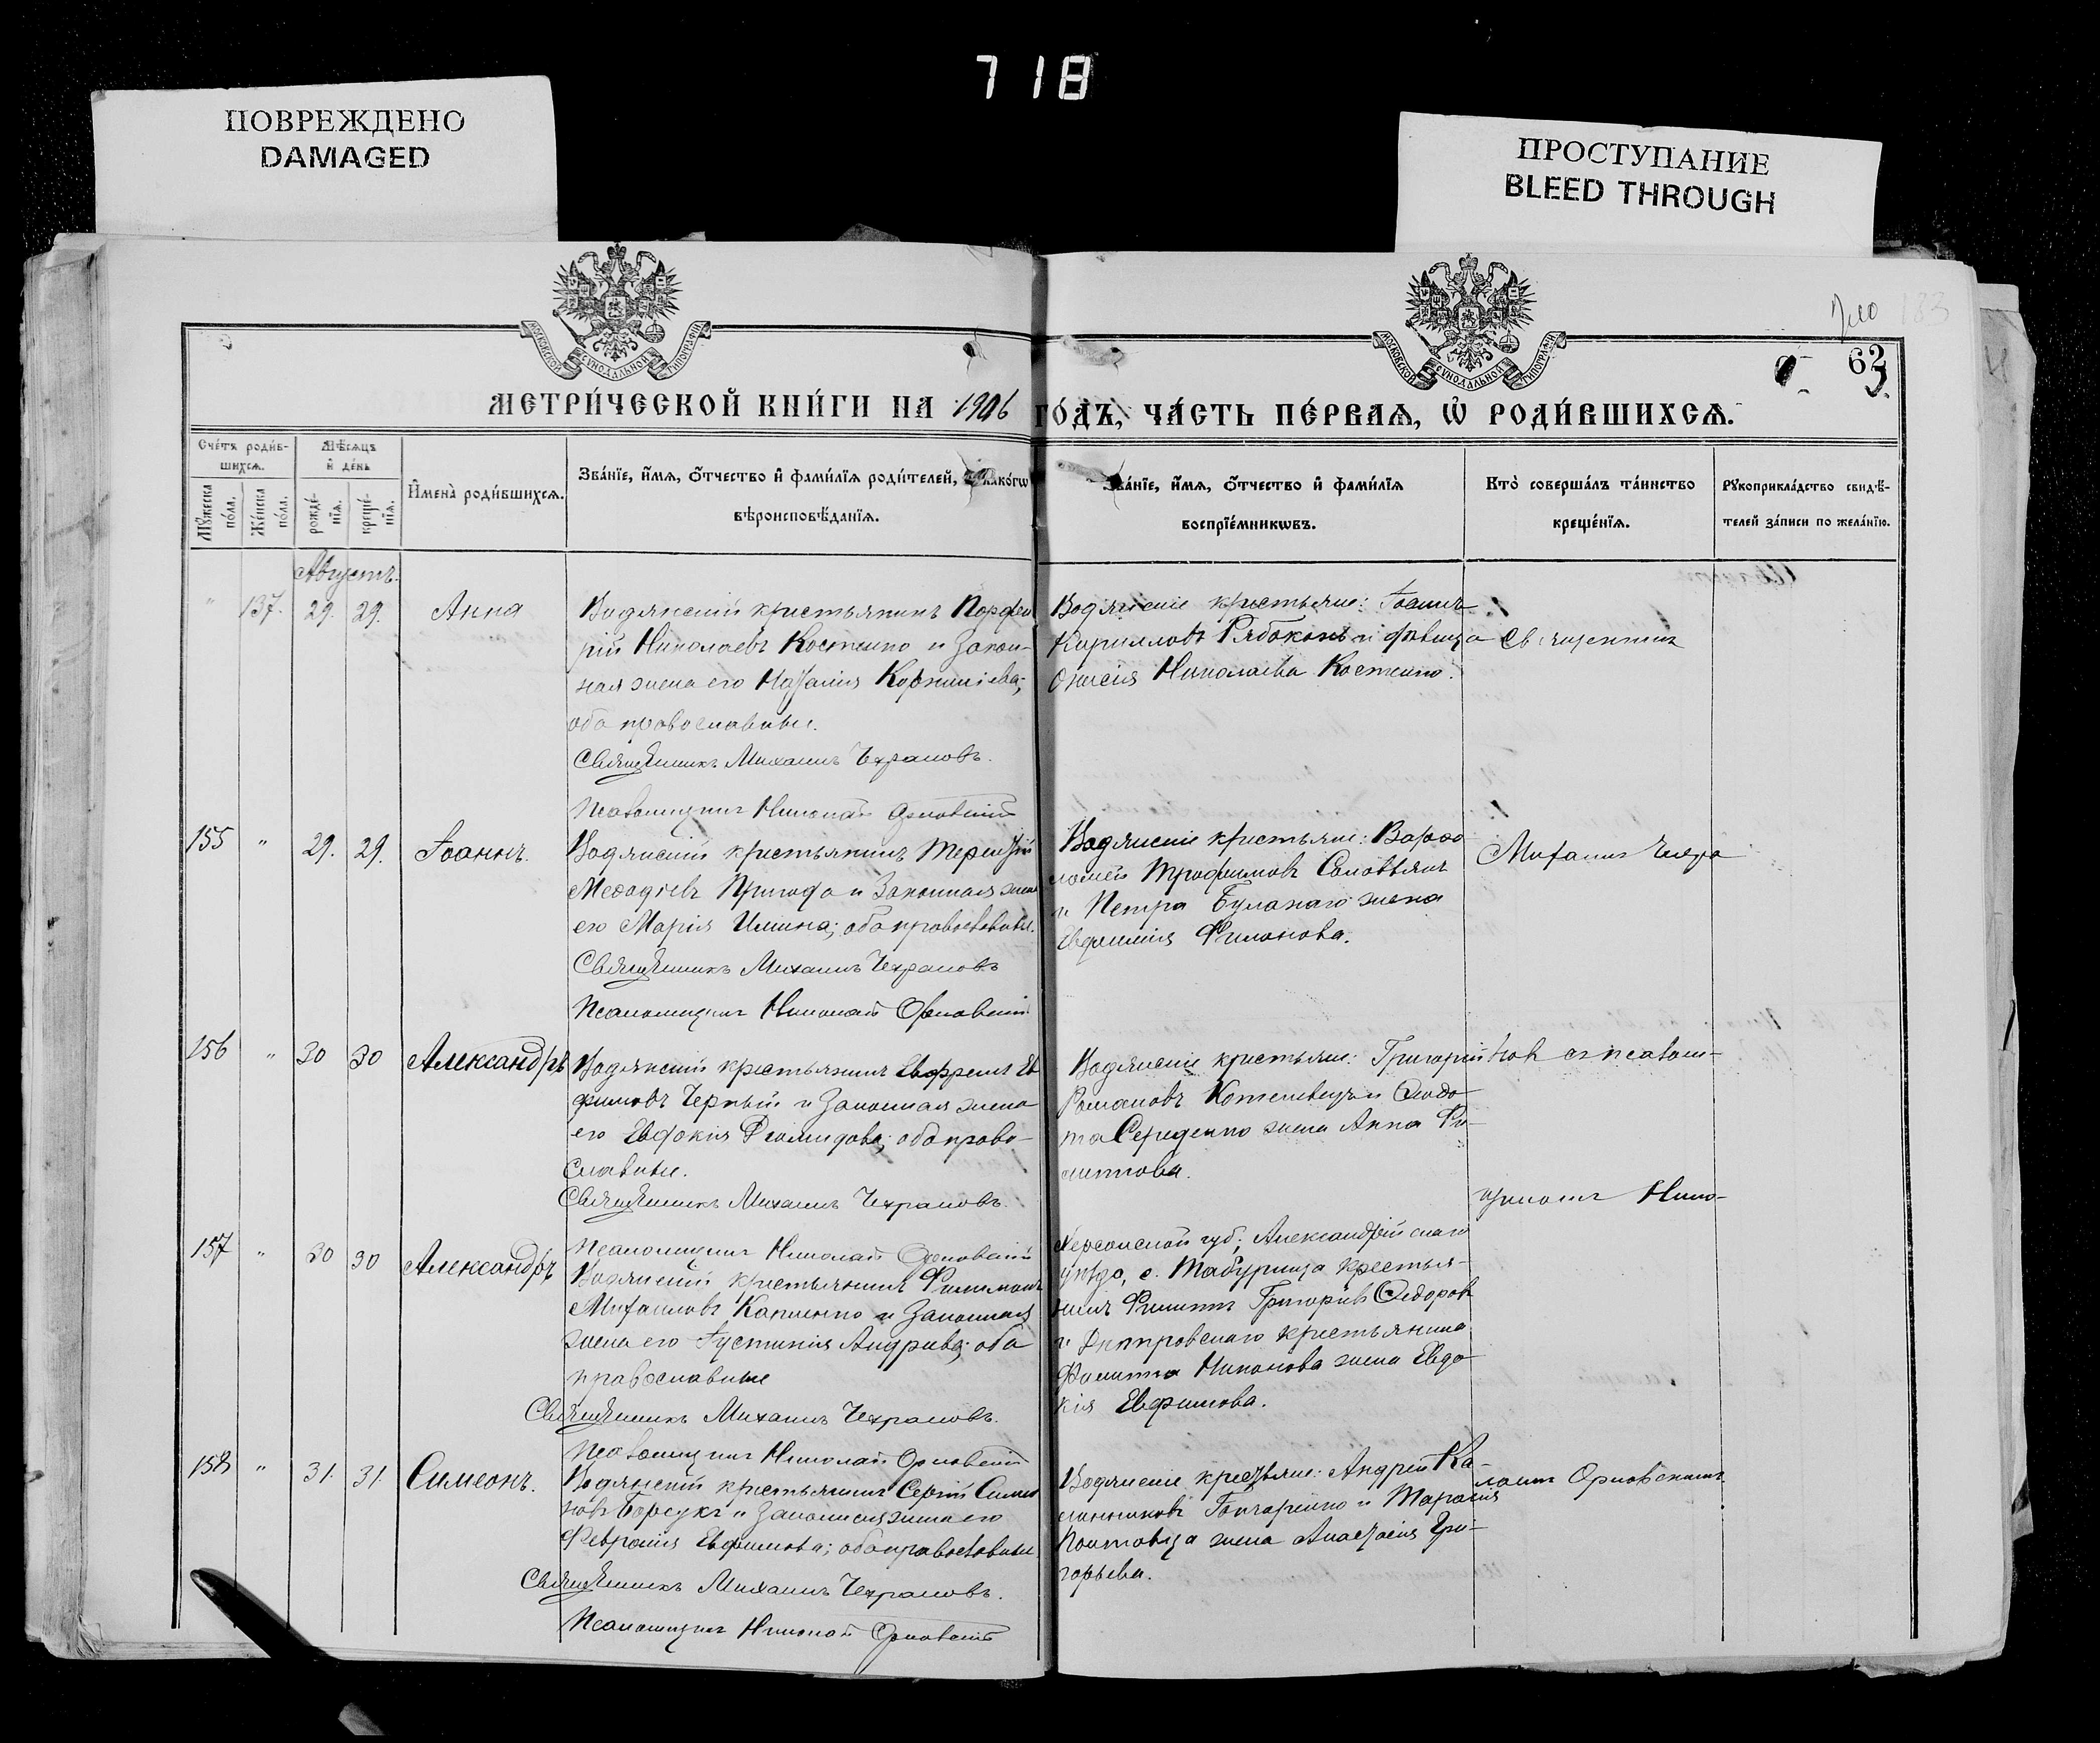 718
ПОВРЕЖДЕНО
DAMAGED
ПРОСТУПАНИЕ
BLEED THROUGH
МОСКОВСКОЙ СУНОДАЛЬНОЙ ТИПОГРАФІИ
МОСКОВСКОЙ СУНОДАЛЬНОЙ ТИПОГРАФІИ
63
МЕТРИ́ЧЕСКОЙ КНИ́ГИ НА 1906 ГО́ДЪ, ЧА́СТЬ ПЕ́РВАѦ, Ѡ҆ РОДИ́ВШИХСѦ.
Сче́тъ роди́в-
шихсѧ.
Мѣ́сѧцъ
и҆ де́нь
Мꙋ́жеска по́ла.
Же́нска по́ла.
рожде́-
нїѧ.
креще́-
нїѧ.
И҆мена̀ роди́вшихсѧ.
Зва́нїе, и҆́мѧ, ѻ҆́тчество и҆ фами́лїѧ роди́телей, и҆ како́гѡ
вѣроисповѣ́данїѧ.
Зва́нїе, и҆́мѧ, ѻ҆́тчество и҆ фами́лїѧ
воспрїе́мникѡвъ.
Кто̀ соверша́лъ та́инство
креще́нїѧ.
Рꙋкоприкла́дство свидѣ́-
телей за́писи по жела́нїю.
Августъ.
" 137. 29. 29. Анна
Водянскій крестьянинъ Порфи
рій Николаевъ Костенко и закон-
ная жена его Наталія Корниліева;
оба православные.
Священникъ Михаилъ Чехрановъ.
Псаломщикъ Николай Орловскій
Водянскіе крестьяне: Іоаннъ
Кирилловъ Рябоконь и дѣвица
Онисія Николаева Костенко.
Священникъ
155 " 29. 29. Іоаннъ.
Водянскій крестьянинъ Терентій
Меѳодіевъ Пригода и законная жена
его Марія Ильина; оба православные.
Священникъ Михаилъ Чехрановъ
Псаломщикъ Николай Орловскій
Водянскіе крестьяне: Варѳо
ломей Трофимовъ Соловьянъ
и Петра Буланаго жена
Евфимія Филонова.
Михаилъ Чехра
156 " 30 30 Александръ
Водянскій крестьянинъ Евфремъ Ев
фимовъ Черный и законная жена
его Евдокія Діомидова; оба право-
славные.
Священникъ Михаилъ Чехрановъ.
Псаломщикъ Николай Орловскій
Водянскіе крестьяне: Григорій
Романовъ Котелевецъ и Ѳеодо
та Середенко жена Анна Фи-
липпова.
новъ съ псалом-
щикомъ Нико-
157 " 30 30 Александръ
Водянскій крестьянинъ Филимонъ
Михаиловъ Капленко и законная
жена его Іустинія Андреева; оба
православные
Священникъ Михаилъ Чехрановъ.
Псаломщикъ Николай Орловскій
Херсонской губ., Александрійскаго
уѣзда, с. Табурища крестья-
нинъ Филиппъ Григорьевъ Ѳедоровъ
и Днѣпровскаго крестьянина
Филиппа Никонова жена Евдо
кія Евфимова.
158 " 31. 31. Симеонъ.
Водянскій крестьянинъ Сергій Симео
новъ Борсукъ и законная жена его
Февронія Евфимова; оба православные
Священникъ Михаилъ Чехрановъ.
Псаломщикъ Николай Орловскій
Водянскіе крестьяне: Андрей Ка-
линниковъ Гончаренко и Тарасія
Полтавца жена Анастасія Гри-
горьева.
лаемъ Орловскимъ